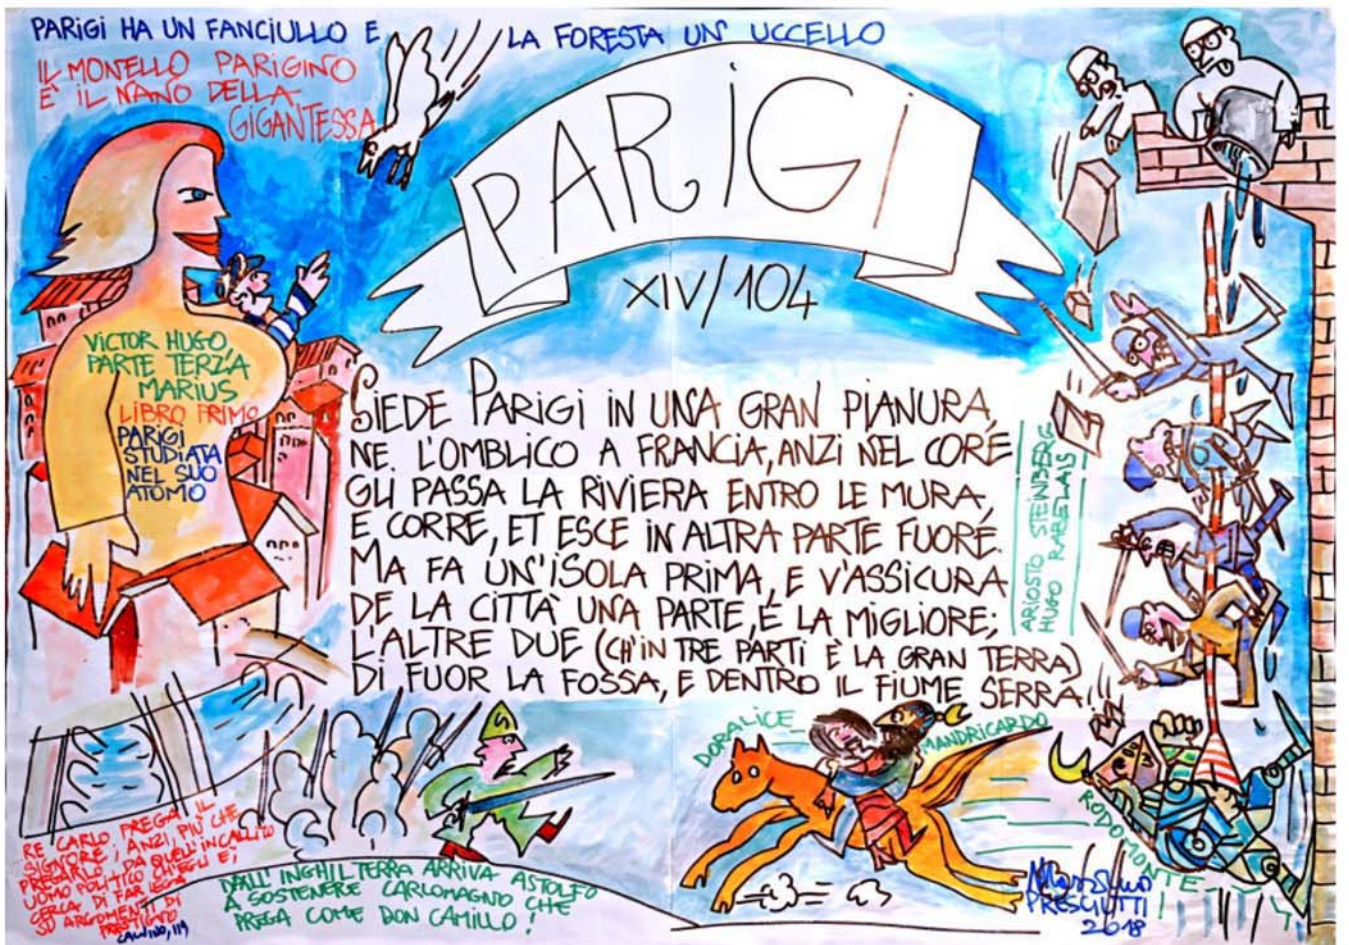 PARIGI HA UN FANCIULLO E LA FORESTA UN UCCELLO
IL MONELLO PARIGINO
È IL NANO DELLA
GIGANTESSA
PARIGI
XIV/104
VICTOR HUGO
PARTE TERZA
MARIUS
LIBRO PRIMO
PARIGI
STUDIATA
NEL SUO
ATOMO
SIEDE PARIGI IN UNA GRAN PIANURA,
NE L'OMBLICO A FRANCIA, ANZI NEL CORE
GLI PASSA LA RIVIERA ENTRO LE MURA,
E CORRE, ET ESCE IN ALTRA PARTE FUORE.
MA FA UN'ISOLA PRIMA, E V'ASSICURA
DE LA CITTÀ UNA PARTE, E LA MIGLIORE;
L'ALTRE DUE (CH'IN TRE PARTI È LA GRAN TERRA)
DI FUOR LA FOSSA, E DENTRO IL FIUME SERRA.
ARIOSTO STEINBERG
HUGO RABELAIS
DORALICE
MANDRICARDO
RODOMONTE
RE CARLO PREGA IL
SIGNORE; ANZI, PIÙ CHE
PREGARLO, DA QUELL'INCALLITO
UOMO POLITICO CH'EGLI È,
CERCA DI FAR LEGA
SU ARGOMENTI DI
PRESTIGIO
CALVINO, 119
DALL'INGHILTERRA ARRIVA ASTOLFO
A SOSTENERE CARLOMAGNO CHE
PREGA COME DON CAMILLO!
MASSIMO
PRESCIUTTI
2018